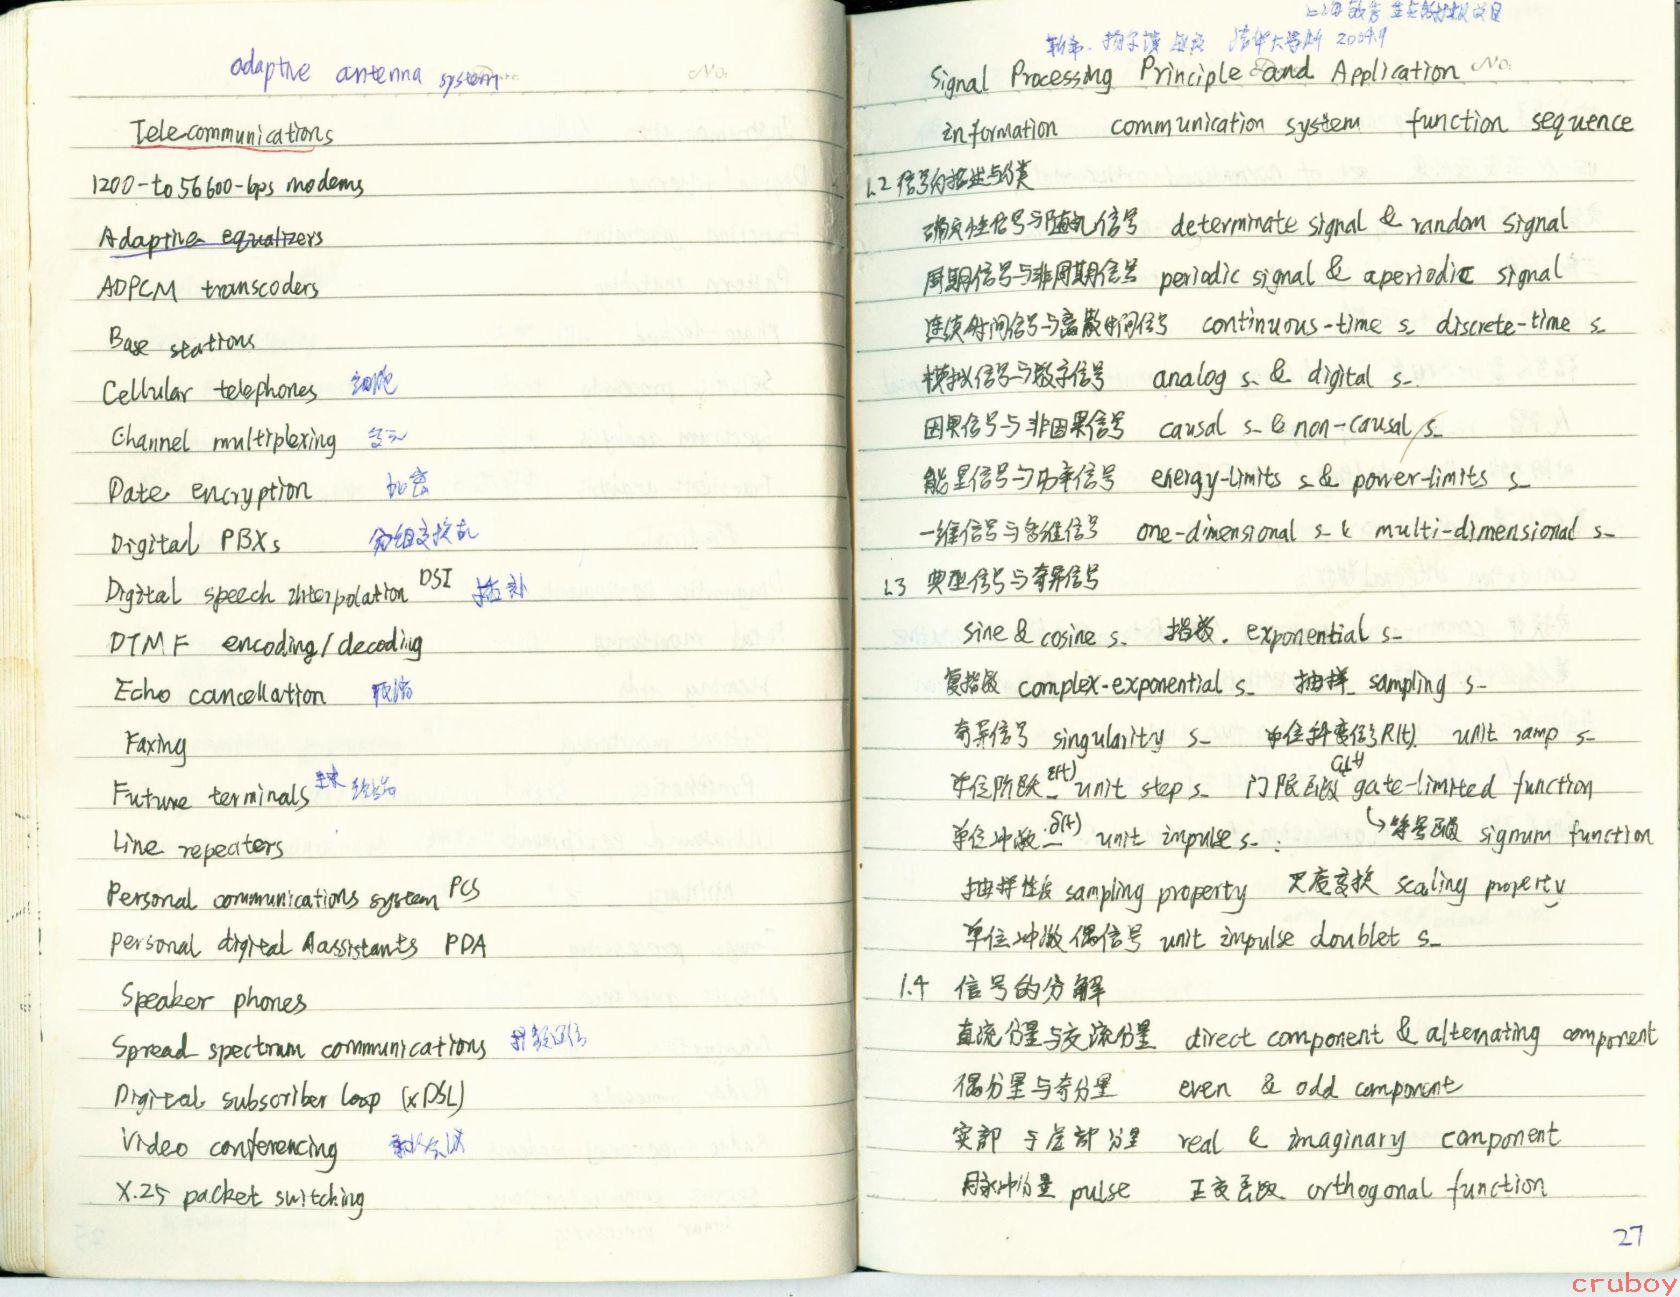 adaptive antenna system
No.
Telecommunications
1200-to 56600-bps modems
Adaptive equalizers
ADPCM transcoders
Base stations
Cellular telephones 细胞
Channel multiplexing
Date encryption 加密
Digital PBXs 分组交换机
Digital speech interpolation DSI 插补
DTMF encoding/decoding
Echo cancellation 取消
Faxing
Future terminals 未来 终端
Line repeaters
Personal communications system PCS
Personal digital Aassistants PDA
Speaker phones
Spread spectrum communications 扩频通信
Digital subscriber loop (xDSL)
Video conferencing
X.25 packet switching
清华大学 2004.9
Signal Processing Principle and Application No.
information communication system function sequence
1.2 信号的描述与分类
确定性信号与随机信号 determinate signal & random signal
周期信号与非周期信号 periodic signal & aperiodic signal
连续时间信号与离散时间信号 continuous-time s_ discrete-time s_
模拟信号与数字信号 analog s_ & digital s_
因果信号与非因果信号 causal s_ & non-causal s_
能量信号与功率信号 energy-limits s_ & power-limits s_
一维信号与多维信号 one-dimensional s_ & multi-dimensional s_
1.3 典型信号与奇异信号
sine & cosine s_ 指数. exponential s_
复指数 complex-exponential s_ 抽样 sampling s_
奇异信号 singularity s_ 单位斜变信号R(t). unit ramp s_
单位阶跃 ε(t) unit step s_ 门限函数 G(t) gate-limited function
单位冲激 δ(t) unit impulse s_ 符号函数 signum function
抽样性质 sampling property 尺度变换 scaling property
单位冲激偶信号 unit impulse doublet s_
1.4 信号的分解
直流分量与交流分量 direct component & alternating component
偶分量与奇分量 even & odd component
实部与虚部分量 real & imaginary component
脉冲分量 pulse 正交函数 orthogonal function
27
cruboy